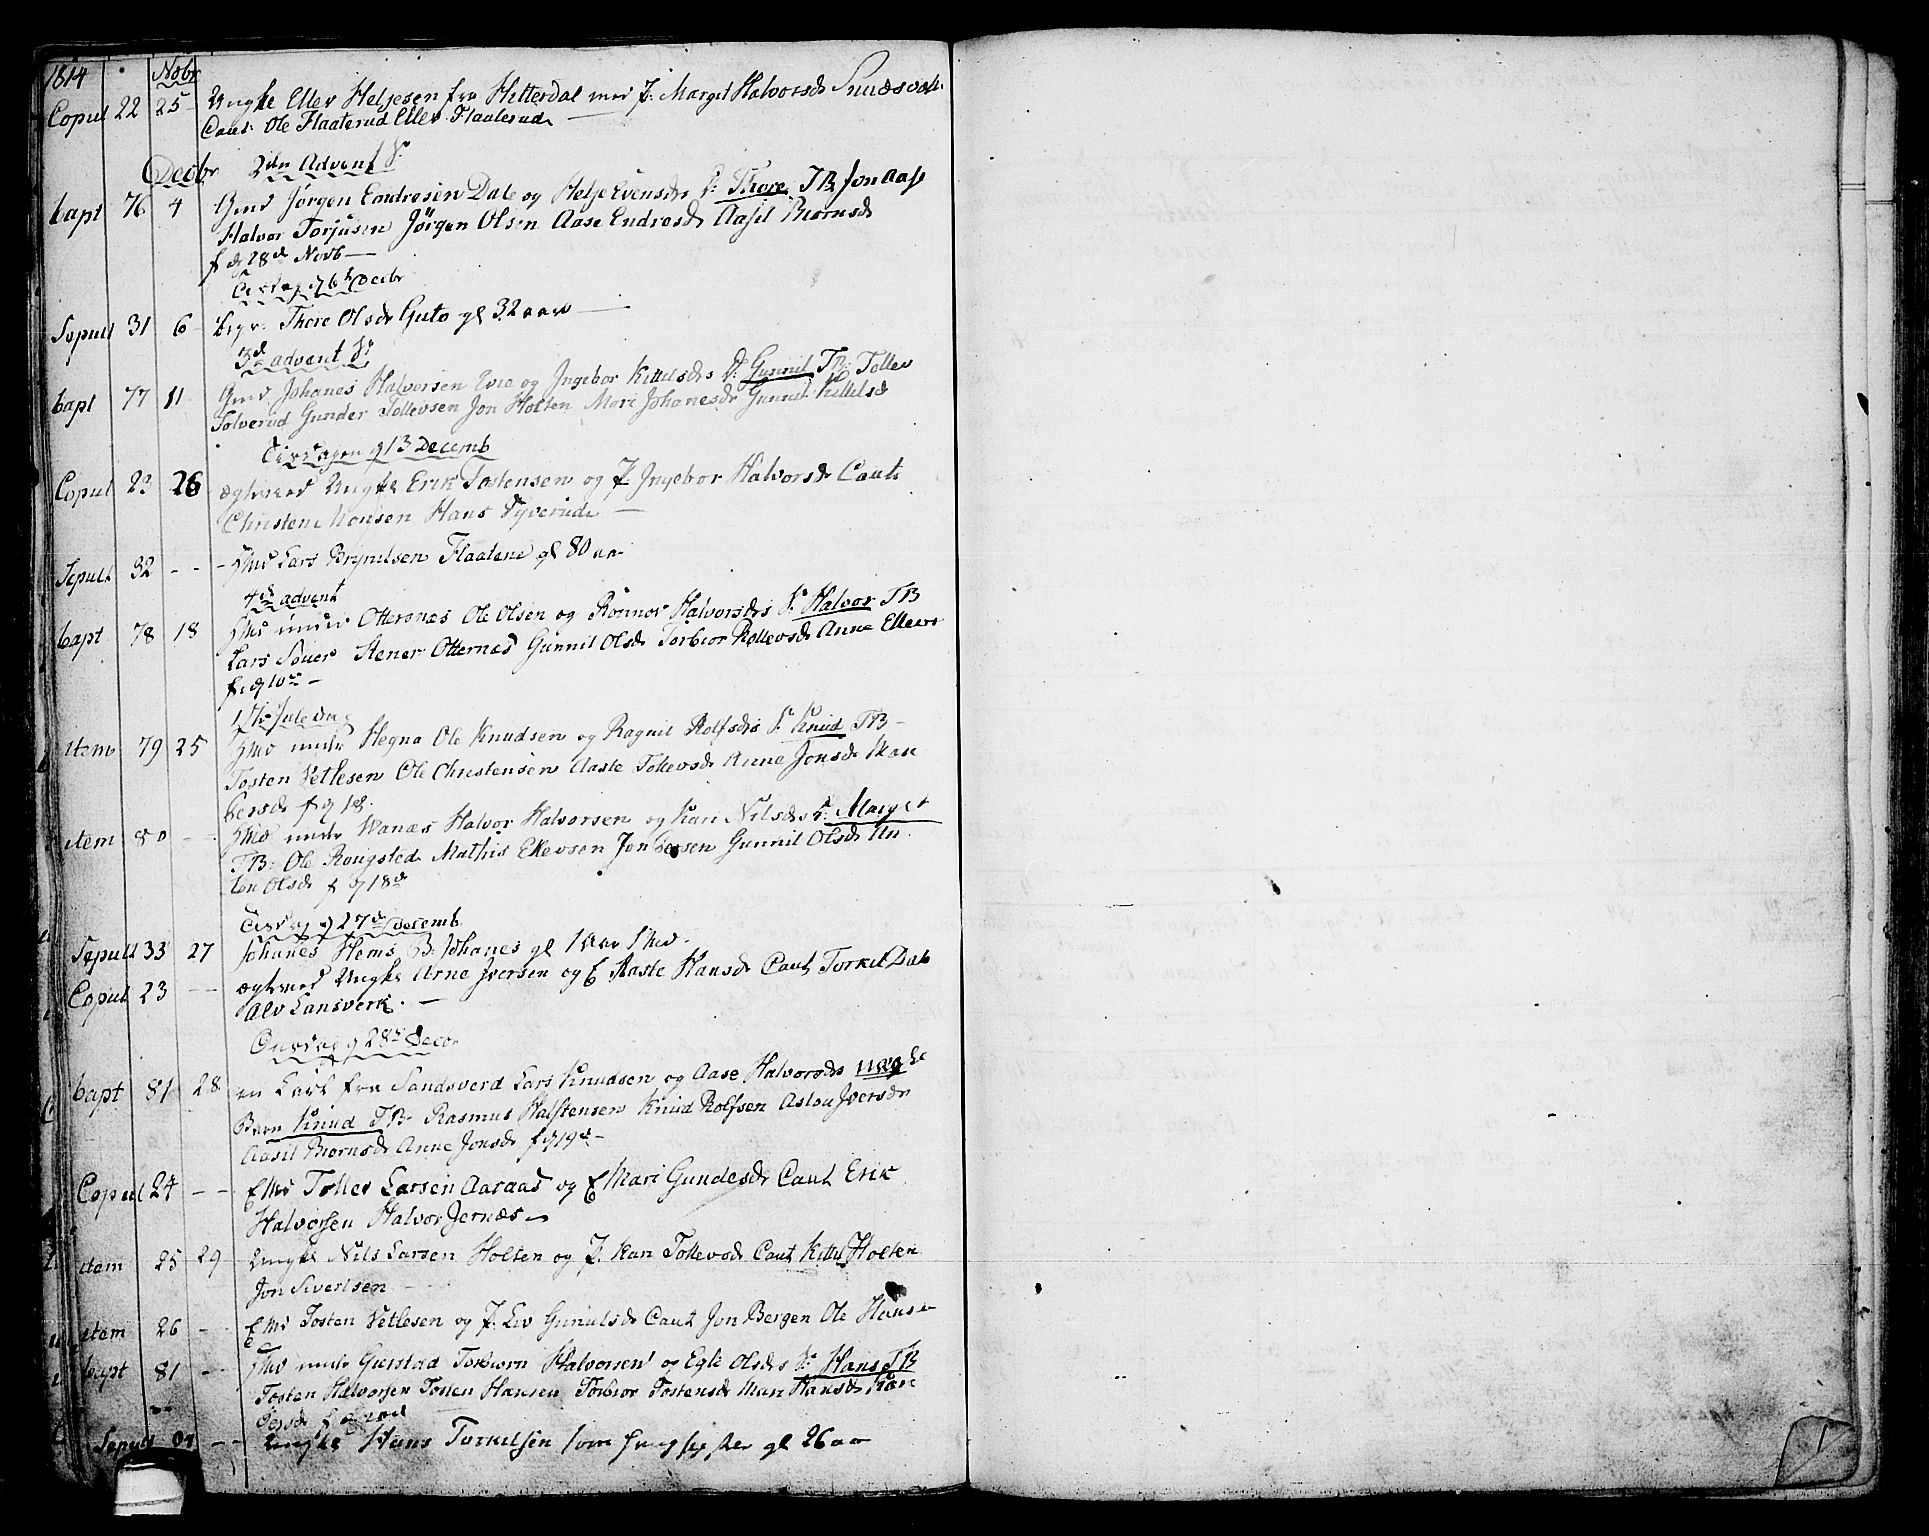 1814 Nobr
Copul 22 25 Ungke Ellev Heljesen fra Hitterdal med P. Margit Halvorsdr
Caut. Ole Flaaterud Ellev Flaaterud
Decbr 2den Advent S.
bapt 76 4 Gmd Jørgen Endresen Dale og Helje Evensdr D. Thore TB Jon Aase
Halvor Torjusen Jörgen Olsen Aase Endresd Aasil Biornsd
f d 28de Novb
Tisdag d 6t Decbr
Sepult 31 6 begr. Thore Olsdr Guto gl 32 aar
3d advent S.
bapt 77 11 Gmd Johanes Halvorsen Evie og Ingebor Kittilsdr D. Gunnil TB. Tollev
Tolverud Gunder Tollevsen Jon Holten Mari Johanesdr Gunnil Kittilsd
Tisdagen d 13 Decemb
Copul 22 26 ægtevied Ungke Erik Tostensen og P. Ingebor Halvorsdr Caut.
Christen Monsen Hans Tyverud
Sepult 32 - - Hmd Lars Brynilsen Flaatene gl 80 aar
4de advent
bapt 78 18 Hmd under Otternæs Ole Olsen og Rönnov Halvorsdrs S. Halvor TB
Lars Souer Stener Otternæs Gunnil Olsdr Torbior Rollevsdr Anne Ellevs
f d 10de
1ste Juledag
item 79 25 Hmd under Hegna Ole Knudsen og Ragnil Rolfsdrs S. Knud TB
Tosten Vetlesen Ole Christensen Aaste Tollevsdr Anne Jonsdr Mari
Persdr f d 18.
item 80 - Hmd under Wanæs Halvor Halvorsen og Kari Nilsdr D. Margit
TB. Ole Rougsted Mathis Ellevsen Jon Persen Gunnil Olsdr
Olsdr f d 18de
Tisdag d 27de Decemb
Sepult 33 27 Johanes Hems B. Johanes gl 1 aar
Copul 23 - - ægteviед Ungke Arne Iversen og E Aaste Hansdr Caut Torkil Dale
Alv Lansverk.
Onsdag d 28de Decbr
bapt 81 28 en Karl fra Sandsverd Lars Knudsen og Aase Halvorsdrs uægte
Barn Knud TB. Rasmus Halstensen Knud Rolfsen Aslou Iversdr
Aasil Biornsdr Anne Jonsdr f d 19de
Copul 24 - - EMd Tollev Larsen Aaraas og E Mari Gundesdr Caut Erik
Halvorsen Halvor Jernæs
item 25 29 Ungke Nils Larsen Holten og P. Kari Tollevsdr Caut Kittil Holten
Jon Sivertsen
item 26 - - EMd Tosten Vetlesen og P. Liv Gunulsdr Caut Jon Bergen Ole Hansen
bapt 81 - - Hmd under Gurstad Torbiorn Halvorsen og Egli Olsdrs S. Hans TB
Tosten Halvorsen Tosten Hansen Torbior Tostensdr Mari Hansdr Kari
Persdr f
Sepult - - Ungke Hans Torkilsen gl 26 aar